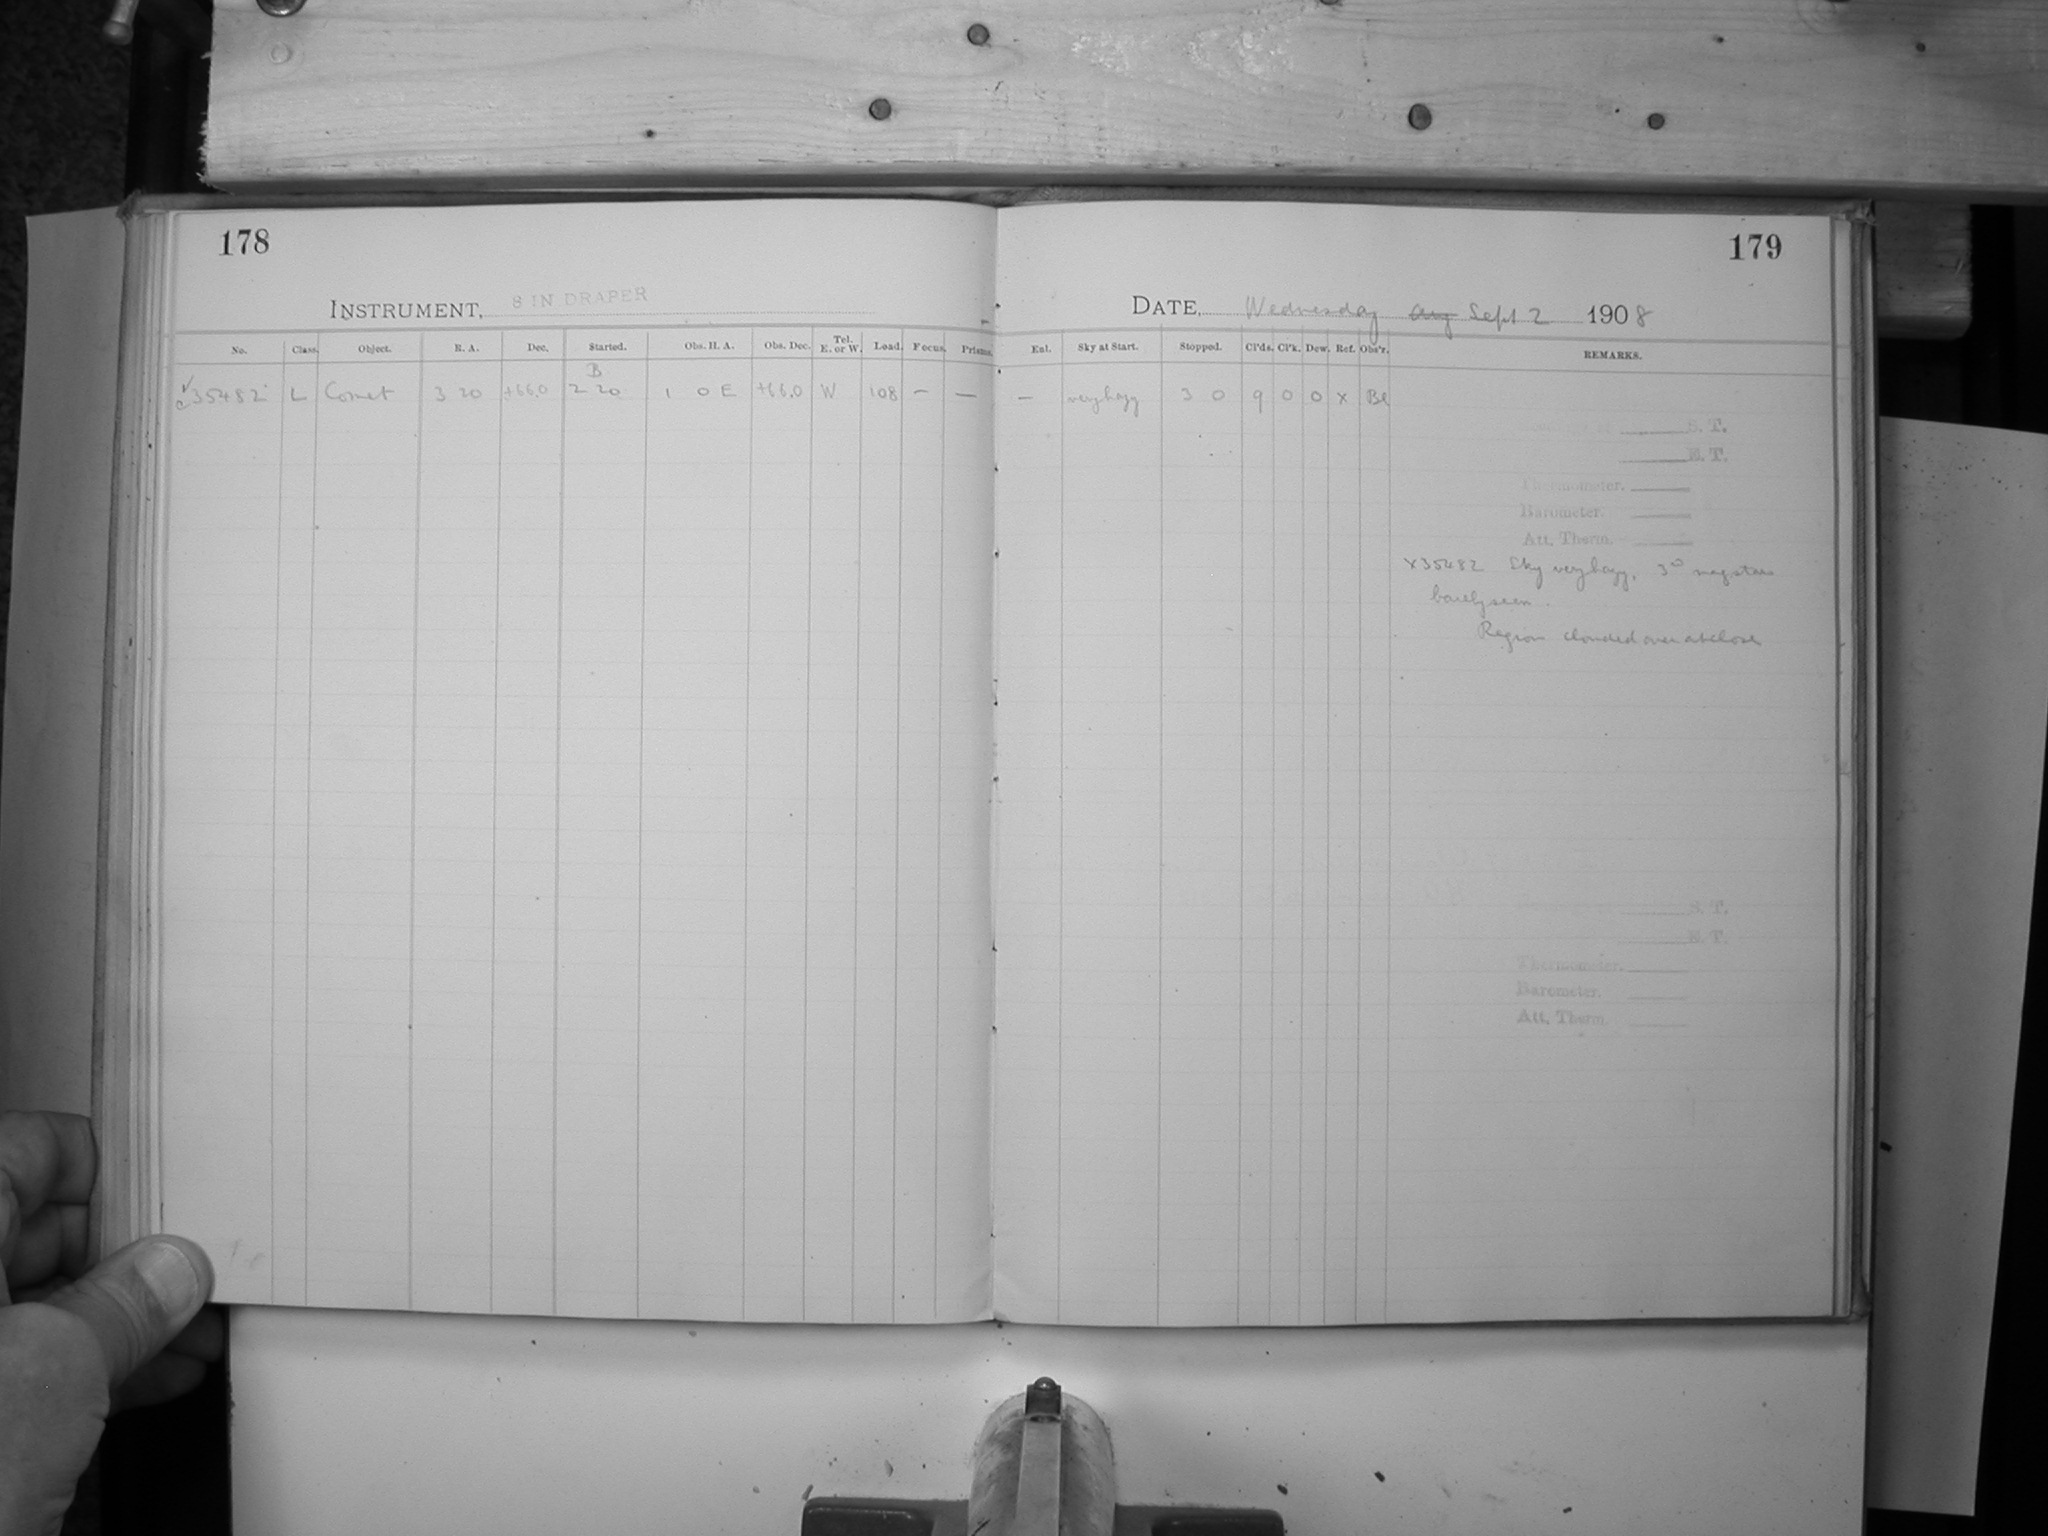 178
INSTRUMENT, 8 IN DRAPER
No. Class. Object. R. A. Dec. Started. Obs. H. A. Obs. Dec. Tel. E. or W. Load. Focus. Prisms.
B
c35482 L Comet 3 20 +66.0 2 20 1 0 E +66.0 W 108 — —
179
DATE, Wednesday Aug Sept 2 1908
Enl. Sky at Start. Stopped. Cl'ds. Cl'k. Dew. Ref. Obs'r. REMARKS.
— very hazy 3 0 9 0 0 x Be
S. T.
E. T.
Thermometer.
Barometer.
Att. Therm.
x35482 Sky very hazy, 3d mag stars
barely seen.
Region clouded over at close
S. T.
E. T.
Thermometer.
Barometer.
Att. Therm.